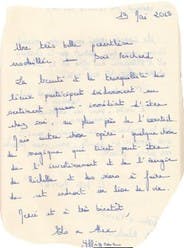 13 Mai 2013
Une très belle parenthèse
ensoleillée au Bois Richard
La beauté et la tranquillité des
lieux participent évidemment au
sentiment quasi- immédiat d'être
chez soi, au plus près de l'essentiel
Mais autre chose opère, quelque chose
de magique qui tient peut-être
de l' environnement et de l'énergie
de Michelle et des siens à faire
de cet endroit un lieu de vie.
Merci et à très bientôt,